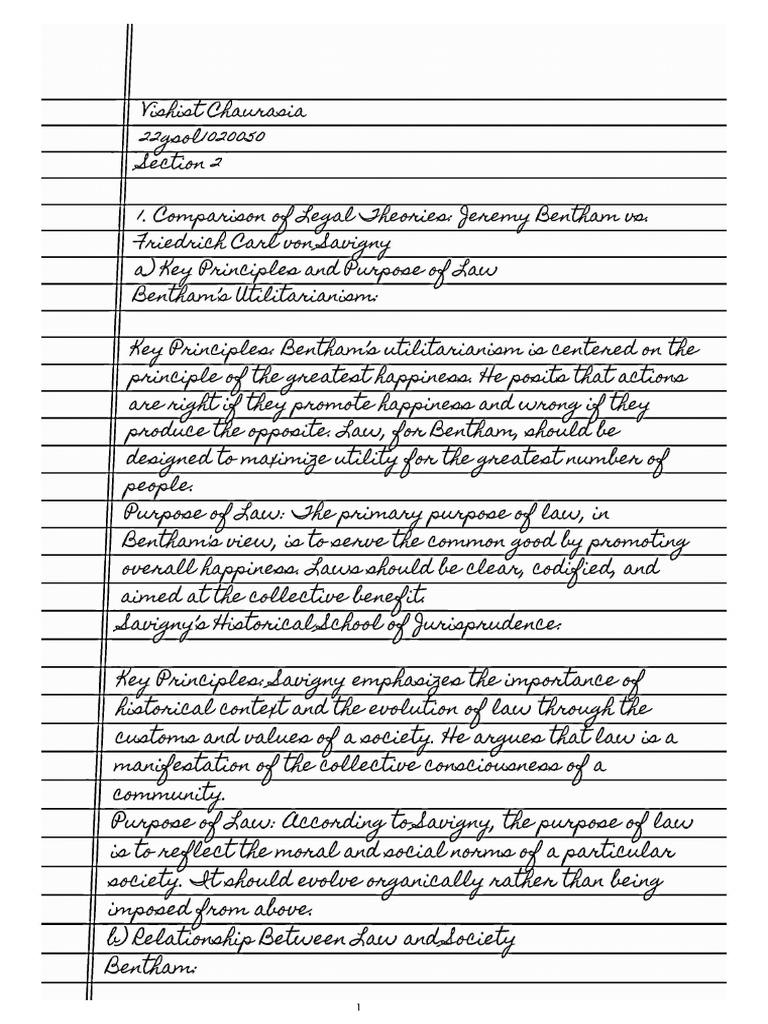 Vishist Chaurasia
22gsol1020050
Section 2
1. Comparison of Legal Theories: Jeremy Bentham vs.
Friedrich Carl von Savigny
a) Key Principles and Purpose of Law
Bentham's Utilitarianism:
Key Principles: Bentham's utilitarianism is centered on the
principle of the greatest happiness. He posits that actions
are right if they promote happiness and wrong if they
produce the opposite. Law, for Bentham, should be
designed to maximize utility for the greatest number of
people.
Purpose of Law: The primary purpose of law, in
Bentham's view, is to serve the common good by promoting
overall happiness. Laws should be clear, codified, and
aimed at the collective benefit.
Savigny's Historical School of Jurisprudence:
Key Principles: Savigny emphasizes the importance of
historical context and the evolution of law through the
customs and values of a society. He argues that law is a
manifestation of the collective consciousness of a
community.
Purpose of Law: According to Savigny, the purpose of law
is to reflect the moral and social norms of a particular
society. It should evolve organically rather than being
imposed from above.
b) Relationship Between Law and Society
Bentham:
1